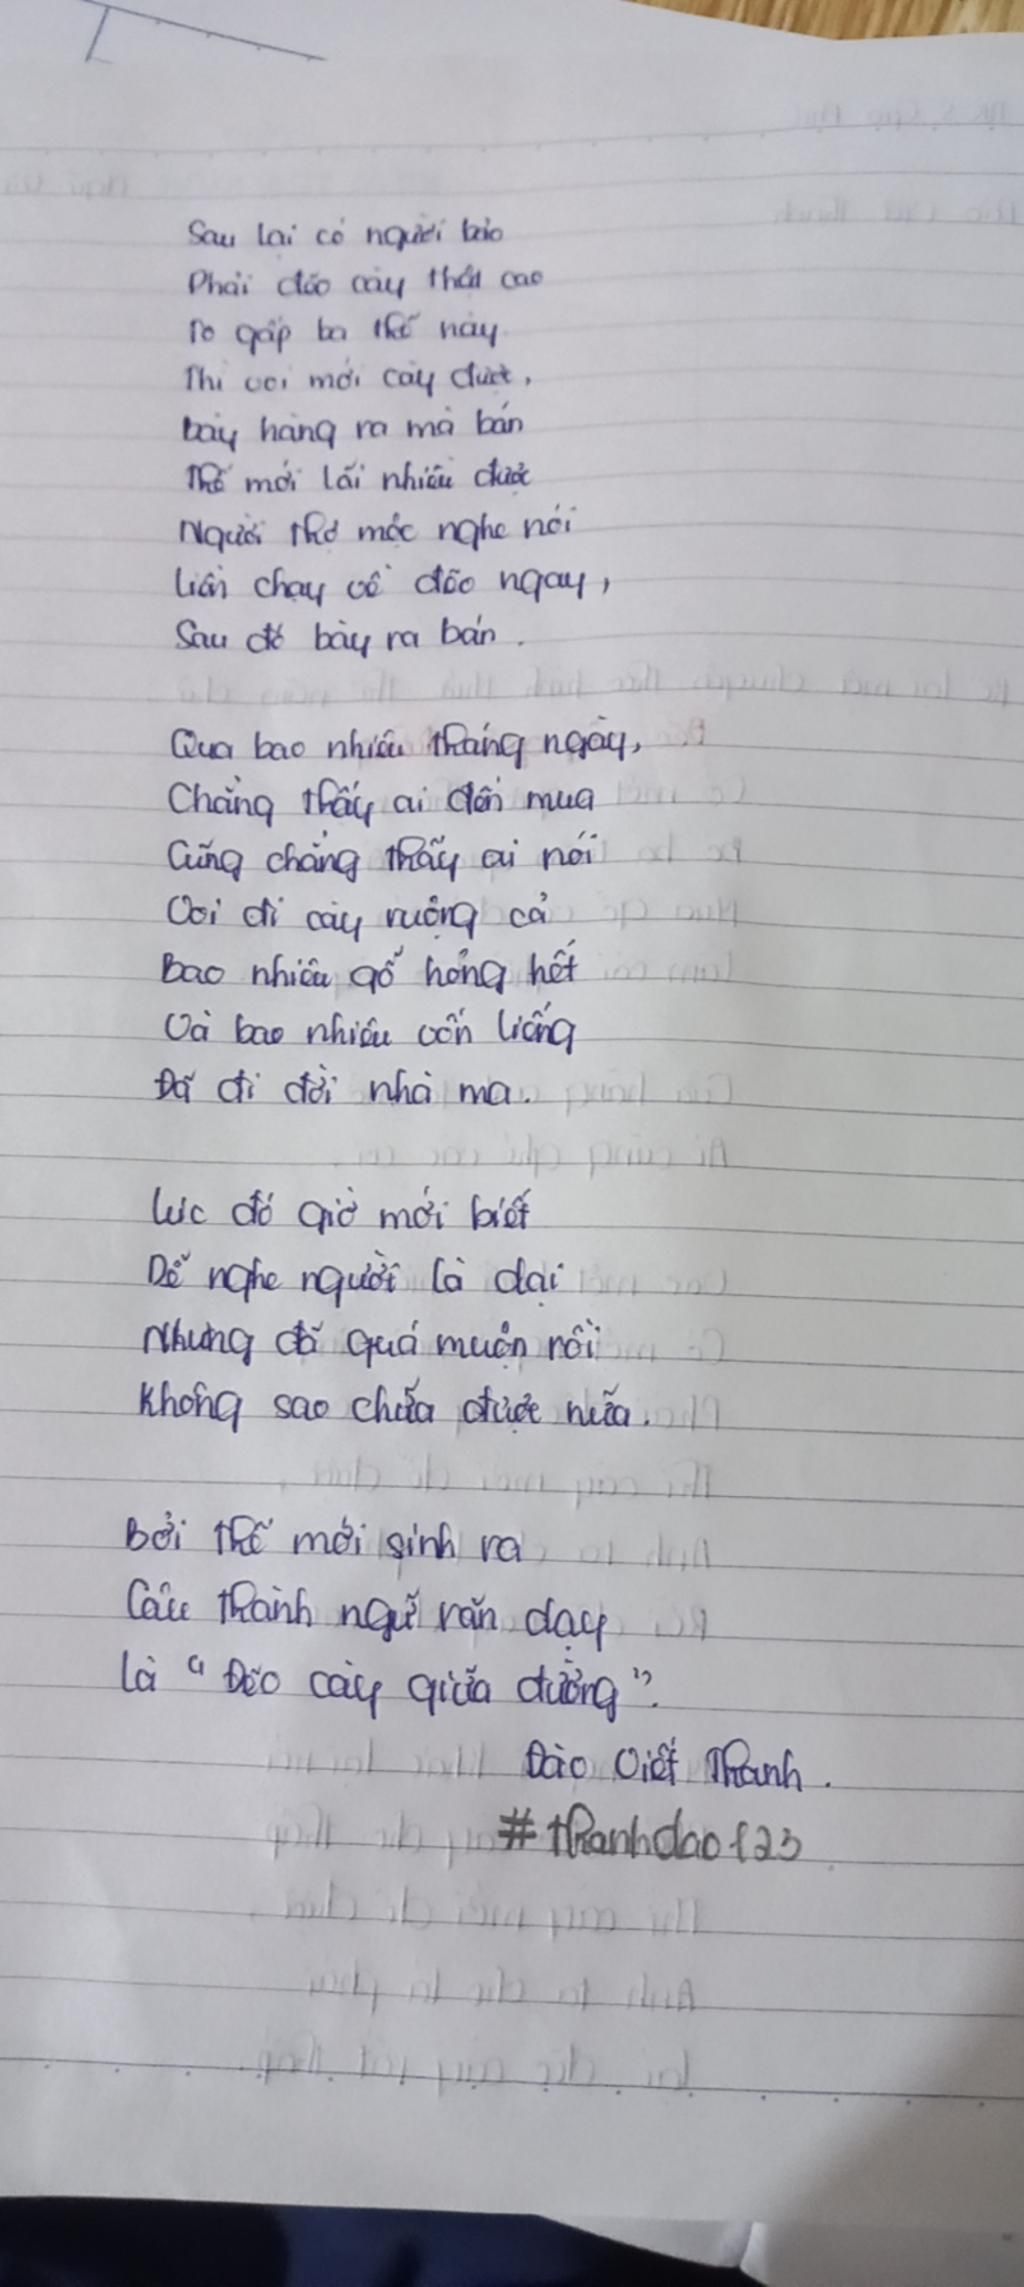 Sau lại có người bảo
Phải đẽo cày thật cao
To gấp ba thế này
Thì voi mới cày được,
bày hàng ra mà bán
Thế mới lãi nhiều được
Người thợ mộc nghe nói
liền chạy về đẽo ngay,
Sau đó bày ra bán.
Qua bao nhiêu tháng ngày,
Chẳng thấy ai đến mua
Cũng chẳng thấy ai nói
Voi đi cày ruộng cả
Bao nhiêu gỗ hỏng hết
Và bao nhiêu vốn liếng
Đã đi đời nhà ma.
Lúc đó giờ mới biết
Dễ nghe người là dại
Nhưng đã quá muộn rồi
Không sao chữa được nữa.
Bởi thế mới sinh ra
Câu thành ngữ răn dạy
Là "Đẽo cày giữa đường".
Đào Viết Thanh.
#thanhdao123